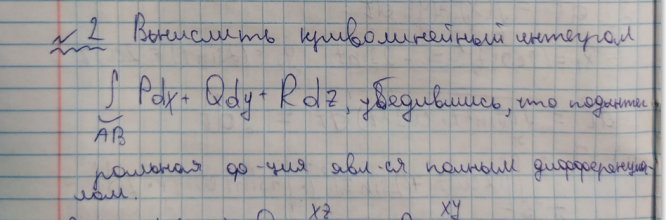 № 2 Вычислить криволинейный интеграл
∫ Pdx + Qdy + Rdz, убедившись, что подынтег
AB
ральная ф-ция явл-ся полным дифференциа-
лом.
xz xy